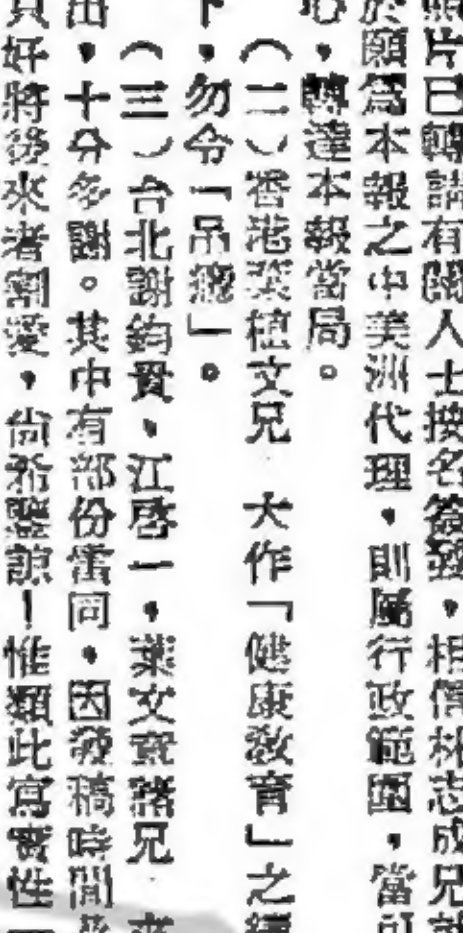 照片已轉請有關人士按名簽發，相信林志成兄
於願為本報之中美洲代理，則屬行政範圍，當可
心，轉達本報當局。
（二）香港葉穗文兄 大作「健康教育」之續
下，勿令「吊癮」。
（三）台北謝鈞賢、江啓一，葉文寳諸兄 來
出，十分多謝。其中有部份雷同，因發稿時間
只好將後來者割愛，尚希鑒諒！惟類此寫實性